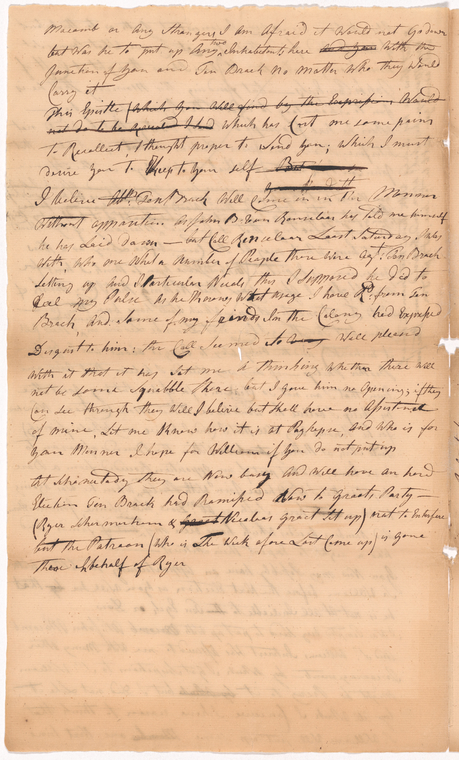 Macomb or Any Strangers I am Afraid it Would not Go down
but Was he to put up Any two Inhabitants here With the
Junction of You and Ten Brack no matter Who they Would
Carry it
This Epistle (Which You Will find by the Expressions Would
not do to be Which has Cost me some pains
to Recollect, I thought proper to Send You; Which I must
desire You to Keep to Your self But
I believe Tenbrack Will Come in in the Manner
Without apposition As John B: Van Ranselaer has told me himself
he has Laid down — but Coll Renselaer Last Saturday
With, Who one What a Number of People there Were agt Ten Brack
setting up and I particular Needs this I supposed he did to
feel my Pulse As he knows What usage I have Rd from Ten
Brack, And Some of my friends In the Colony had Expressed
Disgust to him: the Coll Seemed So Well pleased
With it that it has Set me a thinking Whether there Will
not be some Squabble there but I gave him no Opening, if they
Can see through they Will I believe but shall have no Assistance
of mine, Let me Know how it is at Poghkepse, And Who is for
Gover I hope for William if You do not put up
At Schonectady they are Now busy And Will have an hard
Election Ten Brack had Promised Now to Graets Party —
(Ryer Schermerhorn & Nicolas Graet Set up) not to Enterfere
but the Patroon (Who is The Week afore Last Come up) is Gone
there In behalf of Ryer